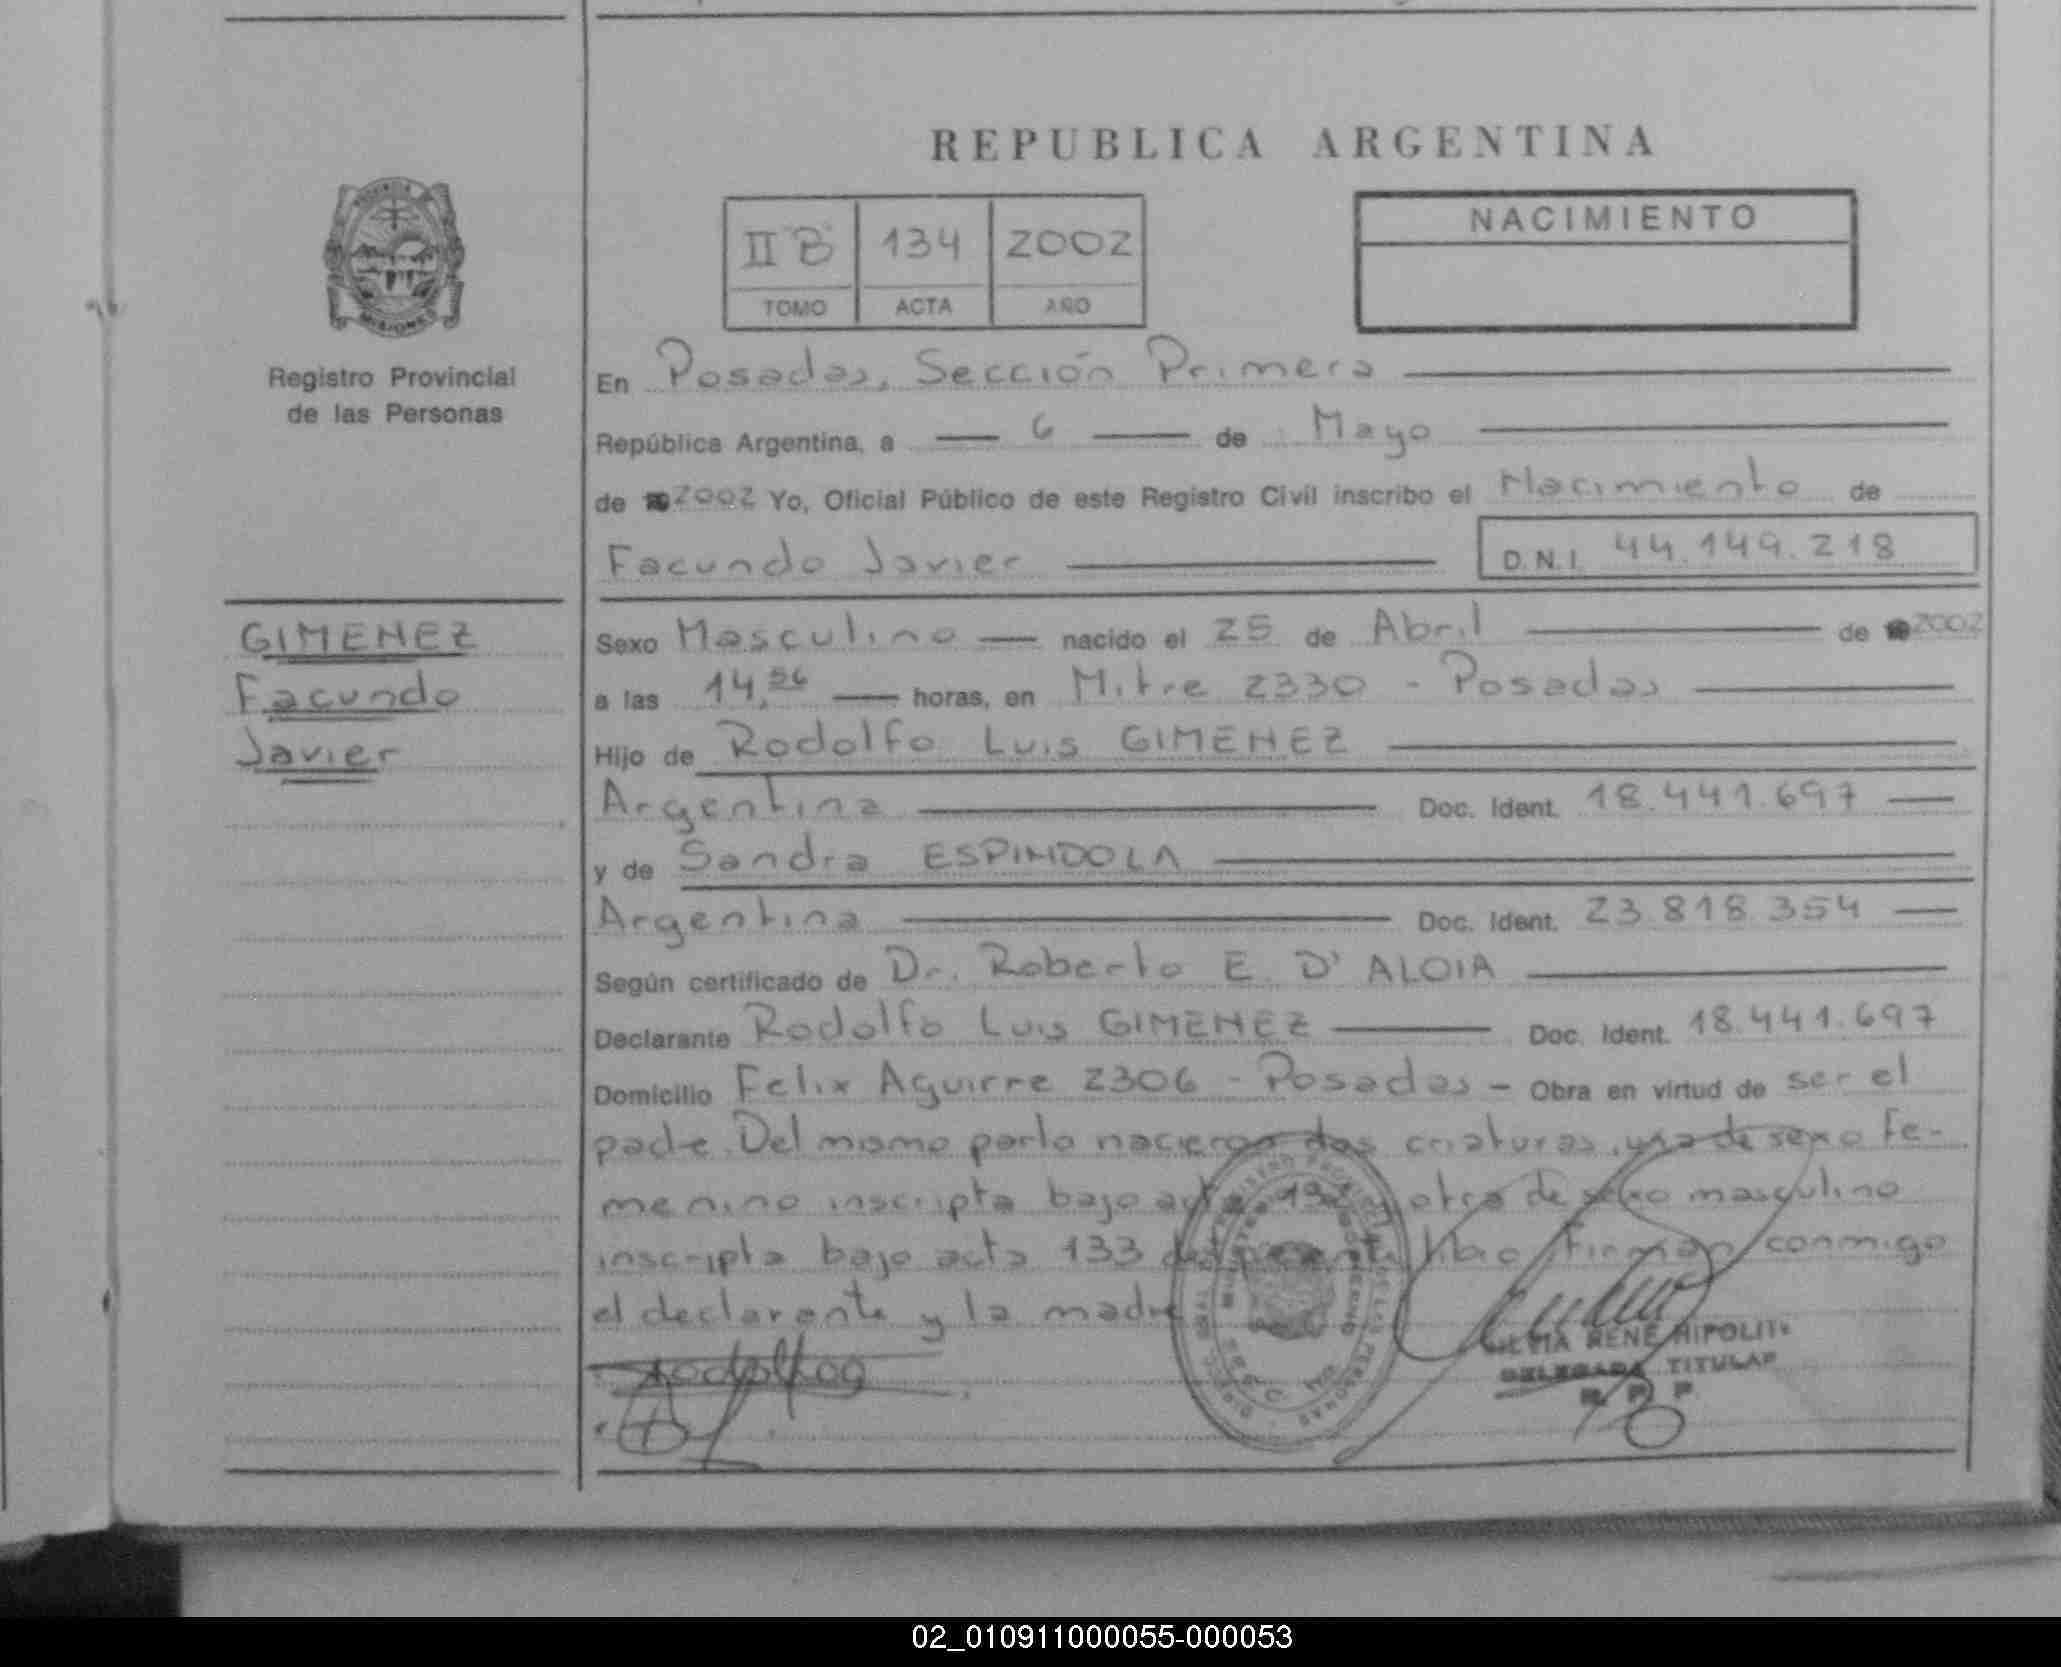 REPUBLICA ARGENTINA
II "B" 134 2002
TOMO ACTA AÑO
NACIMIENTO
MISIONES
Registro Provincial
de las Personas
En Posadas, Sección Primera
República Argentina, a 6 de Mayo
de 2002 Yo, Oficial Público de este Registro Civil inscribo el Nacimiento de
Facundo Javier
D.N.I. 44.149.218
GIMENEZ
Facundo
Javier
Sexo Masculino nacido el 25 de Abril de 2002
a las 14,56 horas, en Mitre 2330 - Posadas
Hijo de Rodolfo Luis GIMENEZ
Argentina Doc. Ident. 18.441.697
y de Sandra ESPINDOLA
Argentina Doc. Ident. 23.818.354
Según certificado de Dr. Roberto E. D'ALOIA
Declarante Rodolfo Luis GIMENEZ Doc. Ident. 18.441.697
Domicilio Felix Aguirre 2306 - Posadas - Obra en virtud de ser el
padre. Del mismo parto nacieron dos criaturas, una de sexo fe-
menino inscripta bajo acta otra de sexo masculino
inscripta bajo acta 133 del presente libro firman conmigo
el declarante y la madre
SILVIA RENE HIPOLITO
DELEGADA TITULAR
R. P. P.
02_010911000055-000053